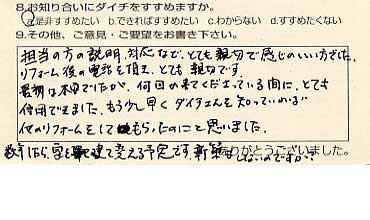 8.お知り合いにダイチをすすめますか。
a.是非すすめたい b.できればすすめたい c.わからない d.すすめたくない
9.その他、ご意見・ご要望をお書き下さい。
担当の方の説明、対応など、とても親切で感じのいい方でした。
リフォーム後の電話を頂き、とても親切です
最初は不安でしたが、何回か来てくださっている間に、とても
信用できました。もう少し早くダイチさんを知っていれば
他のリフォームをしてもらったのにと思いました。
数年したら家を建て変える予定です。新築はしないのですか?
ありがとうございました。